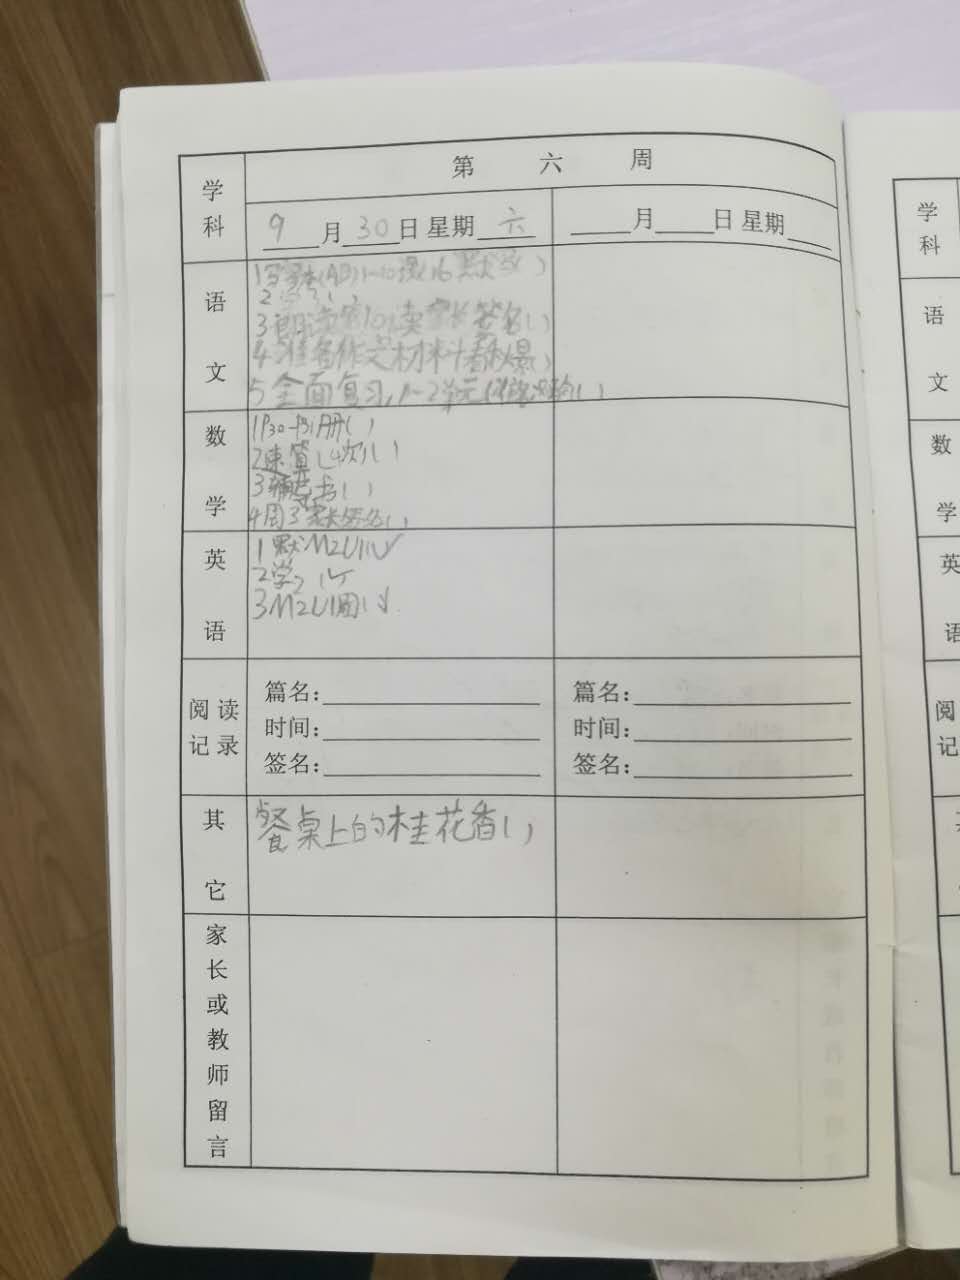 学科
第 六 周
9月30日 星期六
月 日 星期
语文
3朗读第10课家长签名( )
4准备作文材料
5全面复习1~2单元
数学
1P30-P31册( )
2速算(4次)( )
3辅导书( )
4周3家长签名( )
英语
1默M2U1(√
2学2 (√
3M2U1周(√
阅读记录
篇名:
时间:
签名:
篇名:
时间:
签名:
其它
餐桌上的桂花香( )
家长或教师留言
学科
语文
数学
英语
阅
记